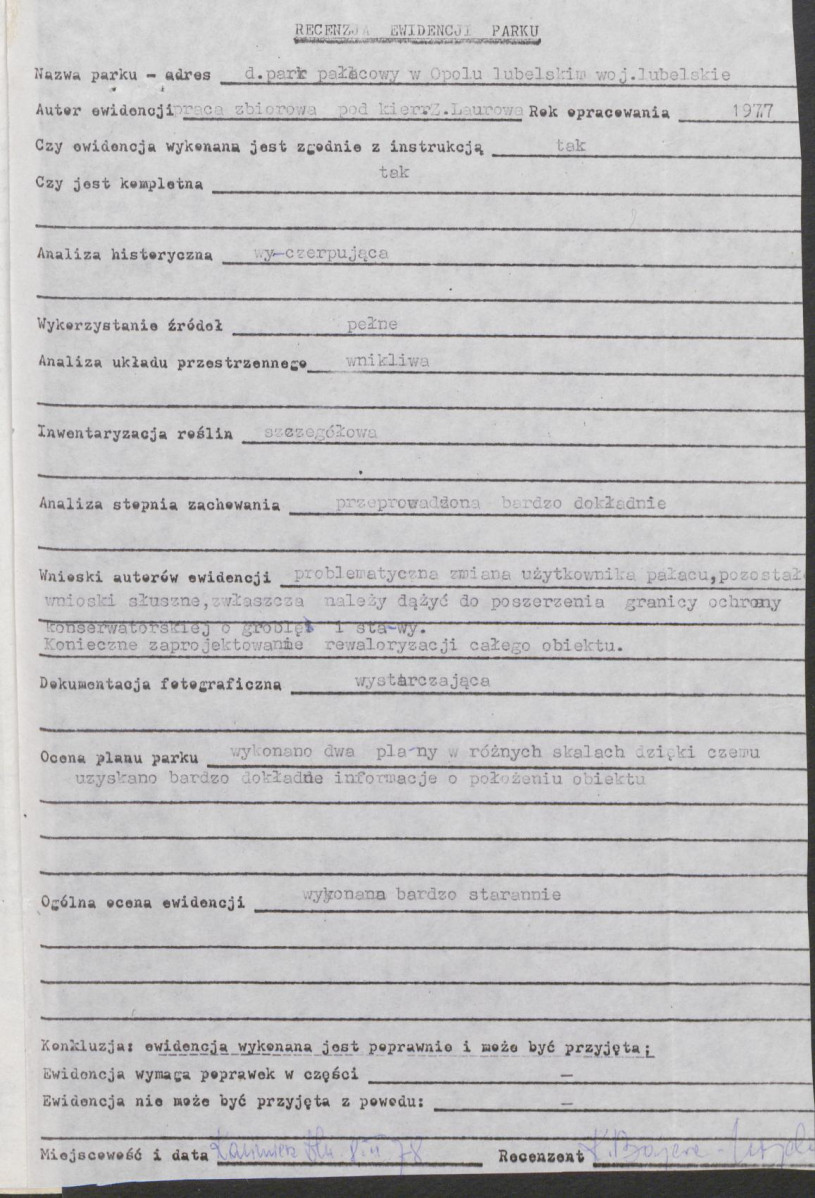 RECENZJA EWIDENCJI PARKU
Nazwa parku - adres d.park pałacowy w Opolu lubelskim woj.lubelskie
Autor ewidencji praca zbiorowa pod kier.Z.Laurową Rok opracowania 1977
Czy ewidencja wykonana jest zgodnie z instrukcją tak
Czy jest kompletna tak
Analiza historyczna wy-czerpująca
Wykorzystanie źródeł pełne
Analiza układu przestrzennego wnikliwa
Inwentaryzacja roślin szczegółowa
Analiza stopnia zachowania przeprowadzona bardzo dokładnie
Wnioski autorów ewidencji problematyczna zmiana użytkownika pałacu, pozostałe
wnioski słuszne, zwłaszcza należy dążyć do poszerzenia granicy ochrony
konserwatorskiej o groblę i sta-wy.
Konieczne zaprojektowanie rewaloryzacji całego obiektu.
Dokumentacja fotograficzna wystarczająca
Ocena planu parku wykonano dwa pla-ny w różnych skalach dzięki czemu
uzyskano bardzo dokładne informacje o położeniu obiektu
Ogólna ocena ewidencji wykonana bardzo starannie
Konkluzja: ewidencja wykonana jest poprawnie i może być przyjęta;
Ewidencja wymaga poprawek w części —
Ewidencja nie może być przyjęta z powodu: —
Miejscowość i data Kazimierz 78 Recenzent